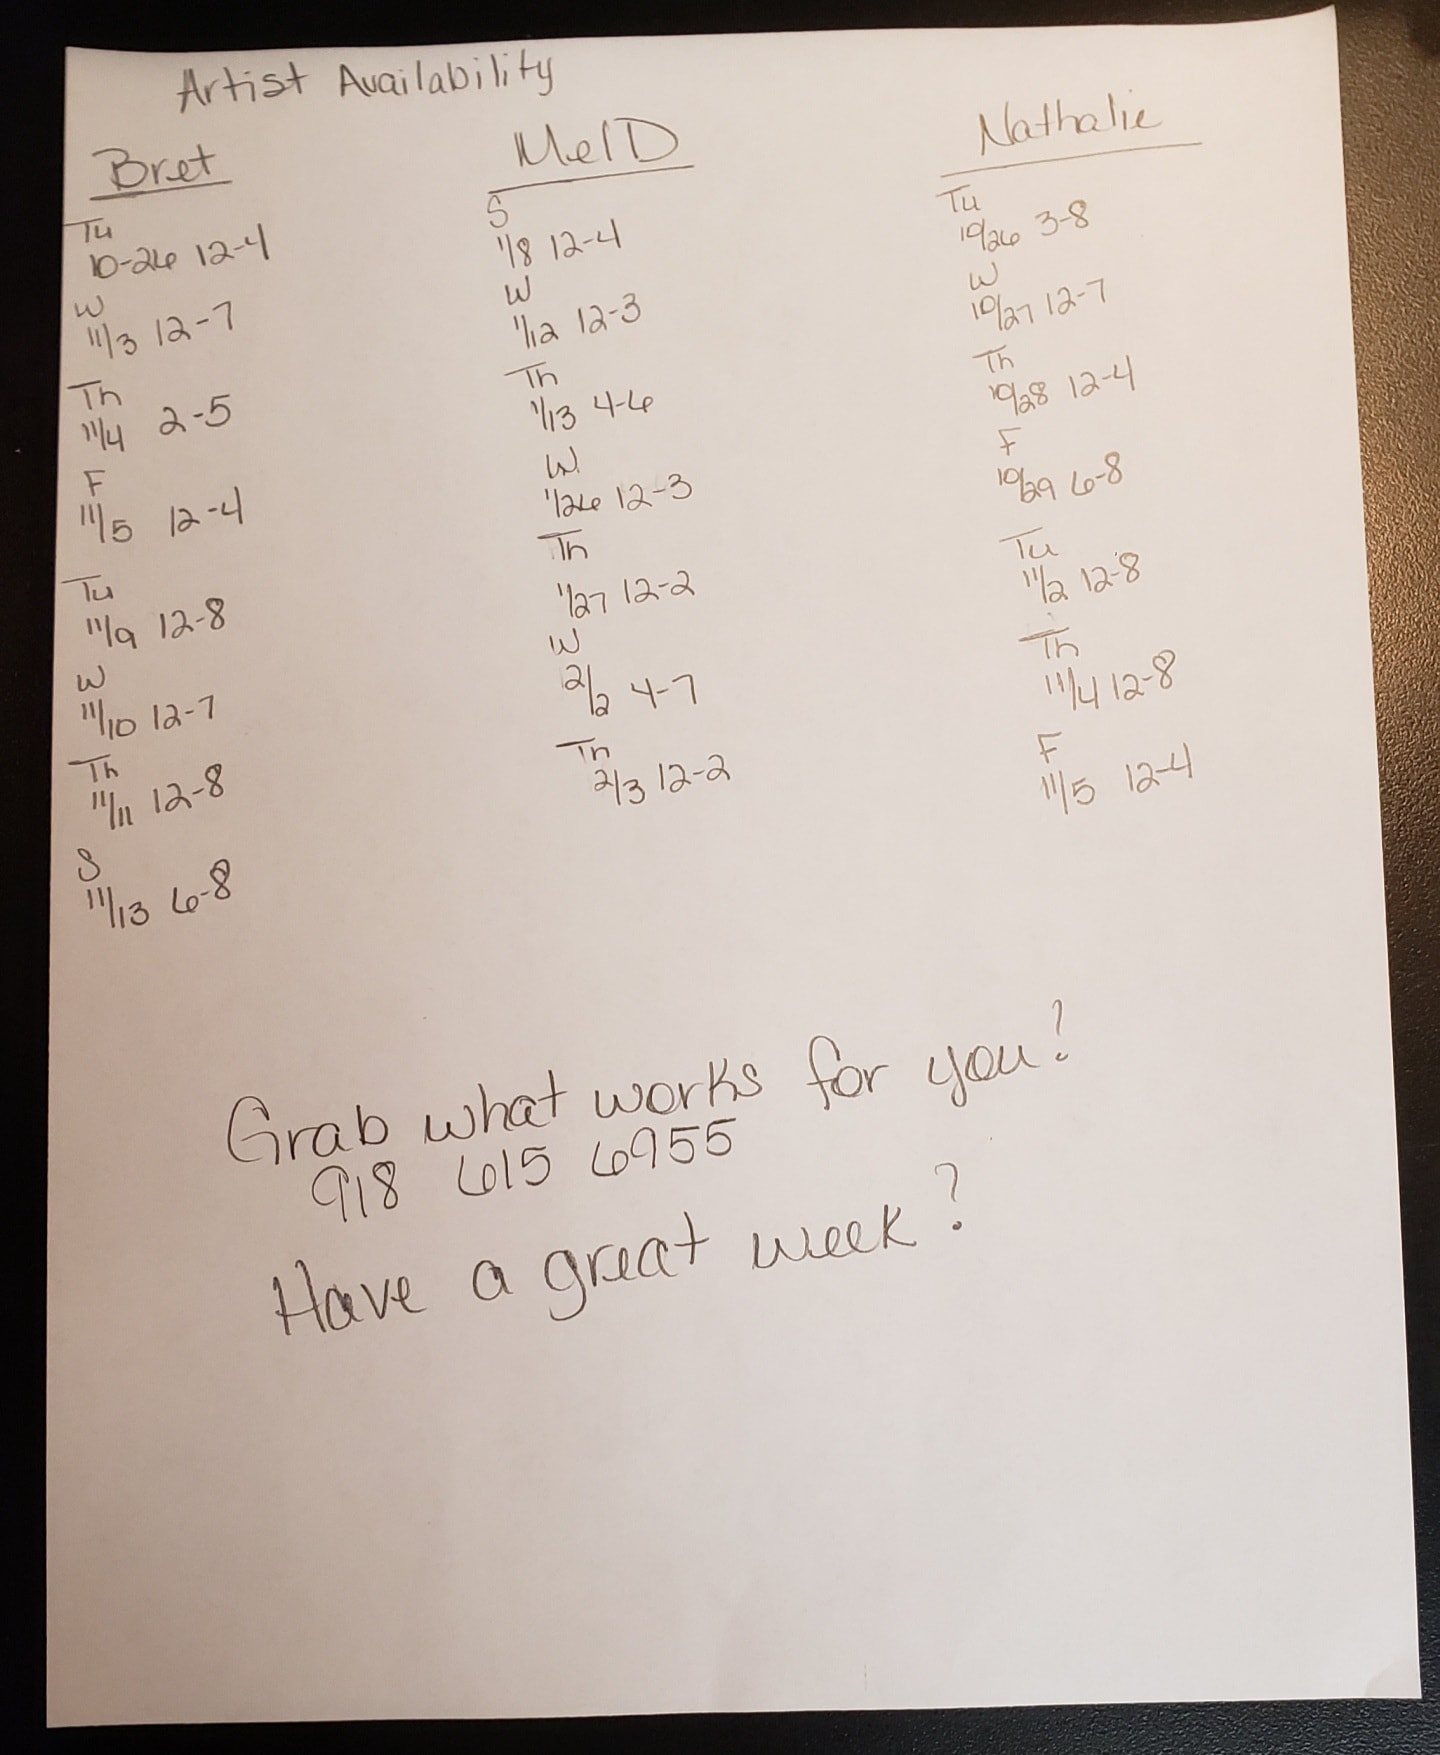 Artist Availability
Bret
Tu
10-26 12-4
W
11/3 12-7
Th
11/4 2-5
F
11/5 12-4
Tu
11/9 12-8
W
11/10 12-7
Th
11/11 12-8
S
11/13 6-8
MelD
S
1/8 12-4
W
1/12 12-3
Th
1/13 4-6
W
1/26 12-3
Th
1/27 12-2
W
2/2 4-7
Th
2/3 12-2
Nathalie
Tu
10/26 3-8
W
10/27 12-7
Th
10/28 12-4
F
10/29 6-8
Tu
11/2 12-8
Th
11/4 12-8
F
11/5 12-4
Grab what works for you?
918 615 6955
Have a great week?